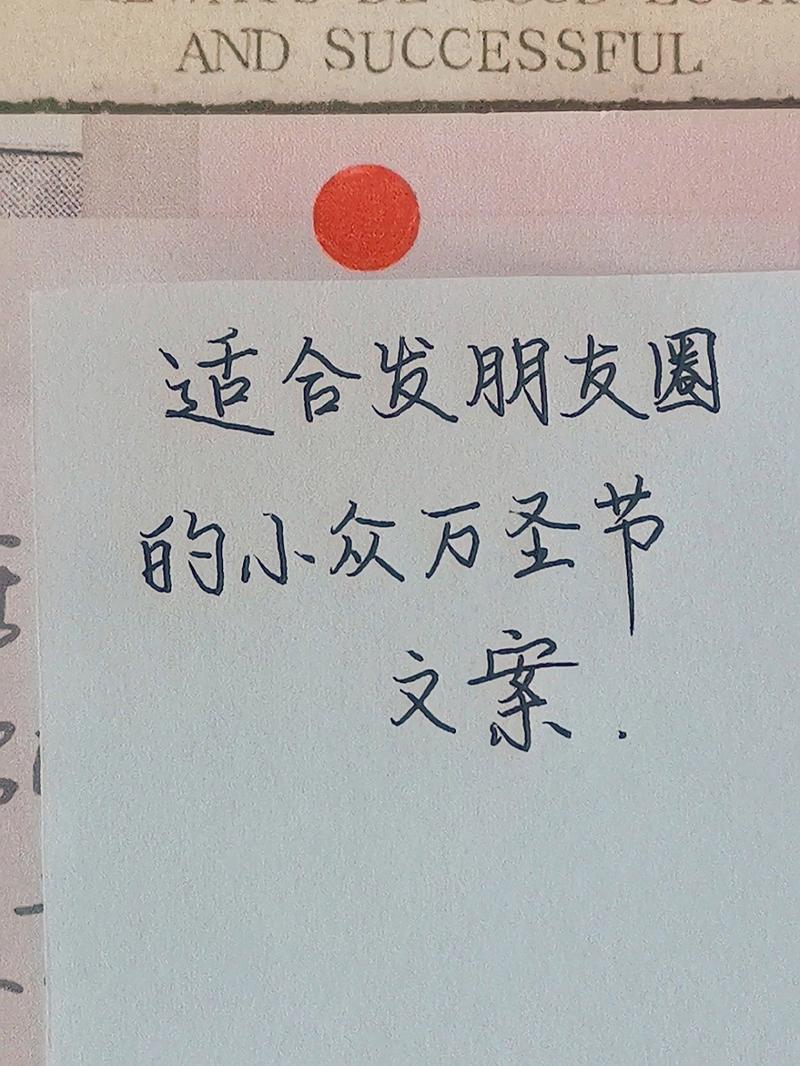 AND SUCCESSFUL
适合发朋友圈
的小众万圣节
文案.